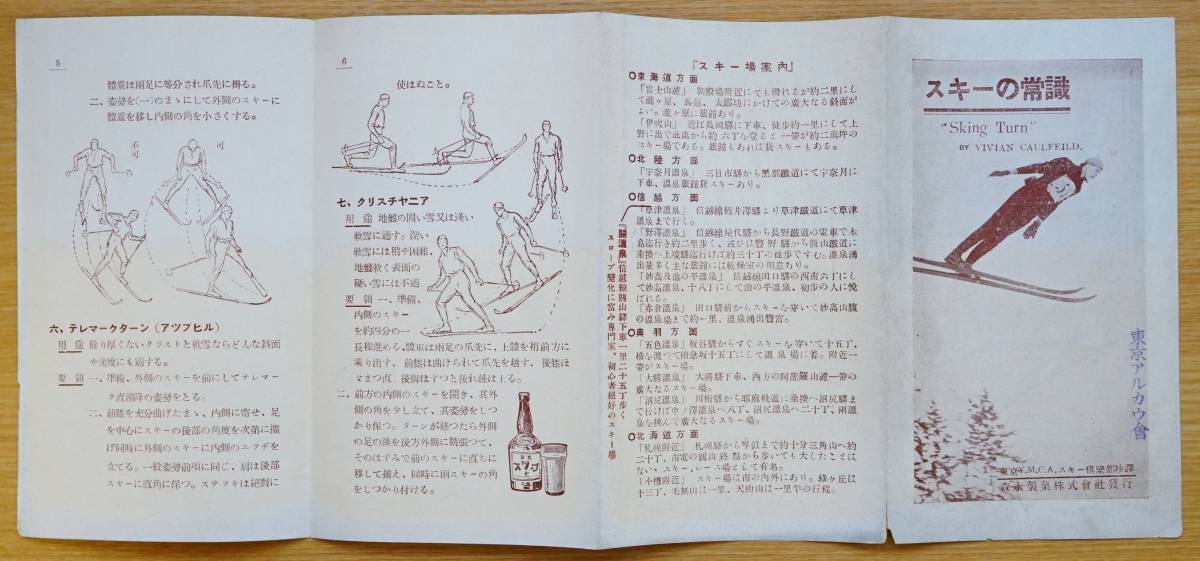 5
體重は兩足に等分され爪先に掛る。
二、姿勢を(一)のまゝにして外側のスキーに
體重を移し内側の角を小さくする。
不可
可
六、テレマークターン(アツプヒル)
用途 餘り厚くないクラストと軟雪ならどんな斜面
や速度にも適する。
要領 一、準備、外側のスキーを前にしてテレマー
ク直滑降の姿勢をとる。
二、前膝を充分曲げたまゝ、内側に寄せ、足
を中心にスキーの後部の角度を次第に擴
げ同時に外側のスキーに内側のエッヂを
立てる。一般姿勢前項に同じ、肩は後部
スキーに直角に保つ。ステツキは絶對に
6
使はぬこと。
七、クリスチヤニア
用途 地盤の固い雪又は淺い
軟雪に適す。深い
軟雪には稍や困難、
地盤軟く表面の
硬い雪には不適
要領 一、準備、
内側のスキー
を約四分の一
長程進める、體重は兩足の爪先に、上體を稍前方に
乘り出す、前膝は曲げられて爪先を越す、後膝も
まつ直、後脚はずつと後れ踵は上る。
二、前方の内側のスキーを開き、其外
側の角を少し立て、其姿勢をしつ
かり保つ。ターンが終つたら外側
の足の踵を後方外側に鞜張つて、
そのはずみで前のスキーに直ちに
移して揃え、同時に兩スキーの角
をしつかり付ける。
『スキー場案内』
○東海道方面
「富士山麓」 御殿場附近にても滑れるが約二里にし
て瀧ヶ原、馬返、太郎坊にかけての廣大なる斜面が
よい。瀧ヶ原に旅館あり。
「伊吹山」 近江長岡驛に下車、徒歩約一里にして上
野に出で此處から約六丁を登ると一帶が約二萬坪の
スキー場である。旅館もあれば貸スキーもある。
○北陸方面
「宇奈月温泉」 三日市驛から黑部鐵道にて宇奈月に
下車、温泉旅館貸スキーあり。
○信越方面
「草津温泉」 信越線輕井澤驛より草津鐵道にて草津
温泉まで行く。
「野澤温泉」 信越線屋代驛から長野鐵道の電車で木
島迄行き約二里歩く、或ひは豐野驛から飯山鐵道に
乘換へ上境驛迄行けば約三十丁の徒歩ですむ。温泉湧
出量多く主な旅館には乾燥室の用意あり。
「妙高及池の平温泉」 信越線田口驛の西南六丁にし
て妙高温泉、十八丁にして池の平温泉、初歩の人に悅
ばれる。
「赤倉温泉」 田口驛前からスキーを穿いて妙高山腹
の温泉場まで約一里、温泉湧出豐富。
『關温泉』信越線關山驛下車一里二十五丁歩く
スロープ變化に富み專門家、初心者絕好のスキー場
○奥羽方面
「五色温泉」 板谷驛からすぐスキーを穿いて十五丁、
橋を渡つて稍急坂十五丁にして温泉場に着。附近一
帶がスキー場。
「大鰐温泉」 大鰐驛下車、西方の阿闍羅山麓一帶の
廣大なるスキー場。
「沼尻温泉」 川桁驛から耶麻軌道に乘換へ沼尻驛ま
で行けば中ノ澤温泉へ八丁、沼尻温泉へ二十丁、兩温
泉を挾んで廣大なるスキー場。
○北海道方面
「札幌附近」 札幌驛から琴似まで約十分三角山へ約
二十丁、市電の圓山終點から歩いても大したことは
ない。スキー、レース場として有名。
「小樽附近」 スキー場は市の内外にあり。綠ヶ丘は
十三丁、毛無山は一里、天狗山は一里半の行程。
スキーの常識
"Sking Turn"
BY VIVIAN CAULFEILD.
東京アルカウ會
東京Y.M.C.A.スキー倶樂部抄譯
森永製菓株式會社發行